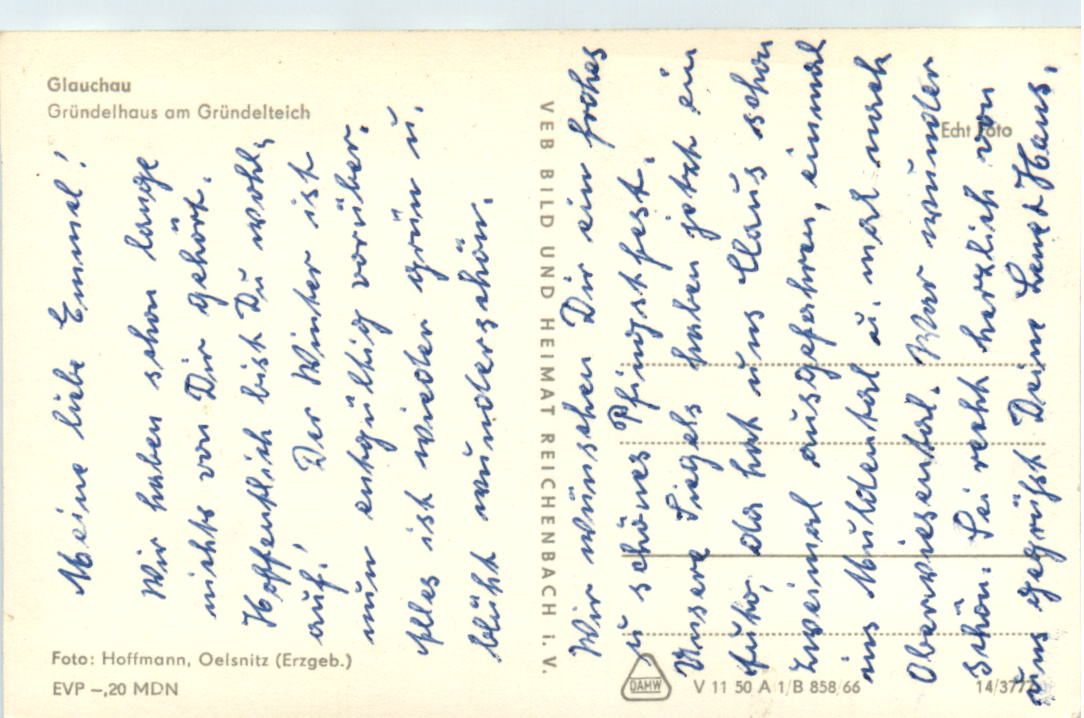 Glauchau
Gründelhaus am Gründelteich
Meine liebe Emmel!
Wir haben schon lange
nichts von Dir gehört.
Hoffentlich bist Du wohl,
auf! Der Winter ist
nun entgültig vorüber.
Alles ist wieder grün u.
blüht wunderschön.
Foto: Hoffmann, Oelsnitz (Erzgeb.)
EVP –,20 MDN
VEB BILD UND HEIMAT REICHENBACH i. V.
Echt Foto
Wir wünschen Dir ein frohes
u schönes Pfingstfest.
Unsere Siegels haben jetzt ein
Auto, da hat uns Claus schon
zweimal ausgefahren, einmal
ins Muldental u. mal nach
Oberwiesental. War wunder
schön. Sei recht herzlich von
uns gegrüßt Deine Lene & Hans.
DAMW
V 11 50 A 1/B 858/66
14/377